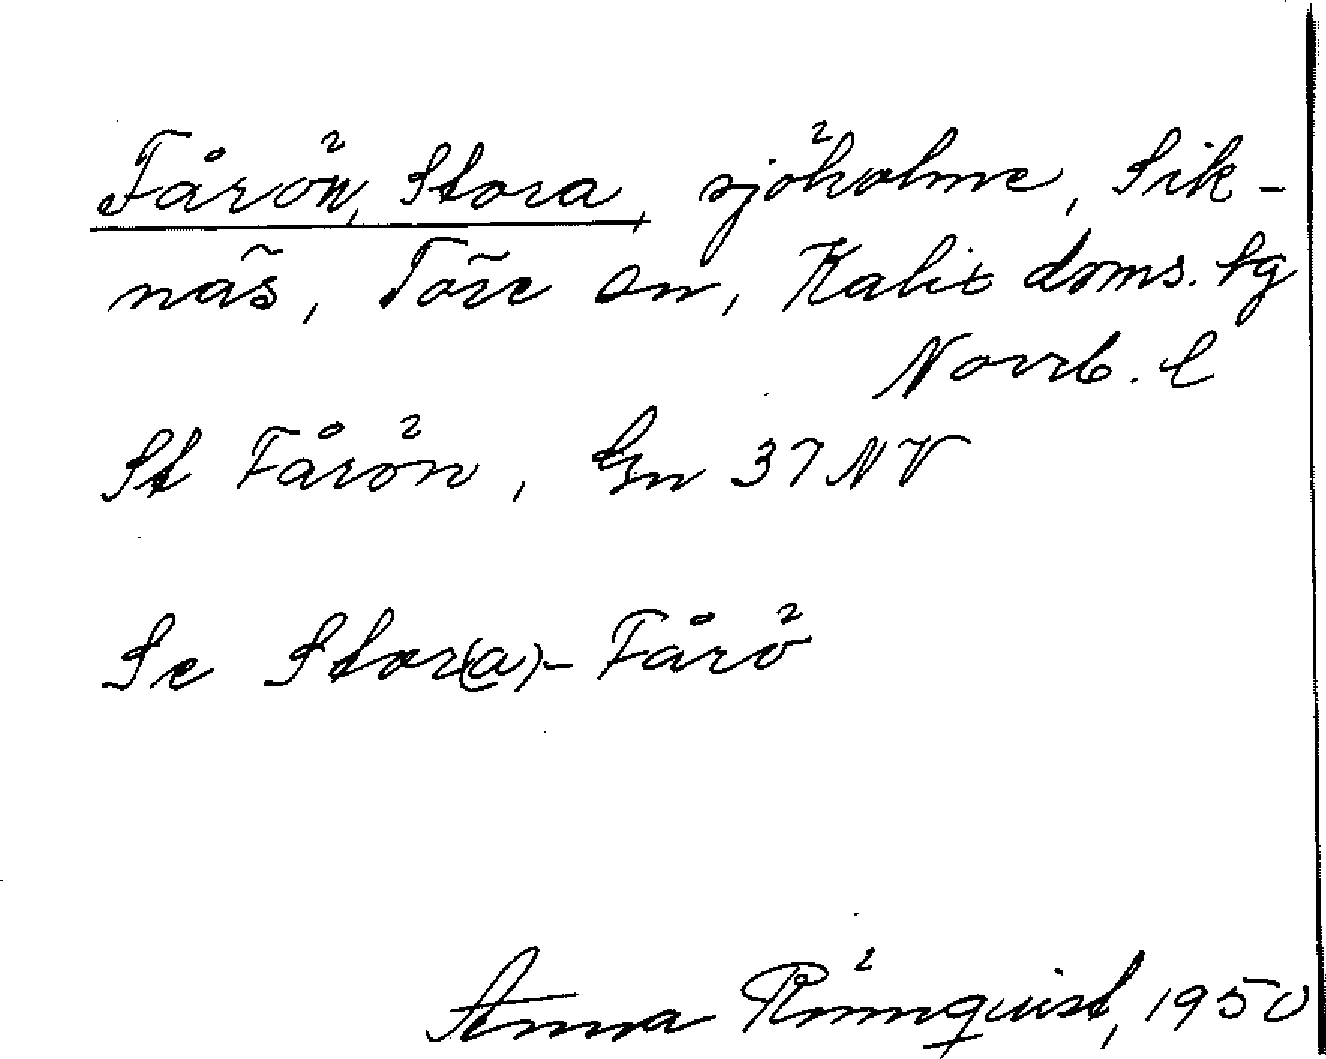 Fårön, Stora, sjöholme, Sik-
näs, Töre sn, Kalix doms. tg
Norrb. l
St Fårön, Gn 37 NV
Se Stor(a)-Fårö
Anna Rönnquist, 1950